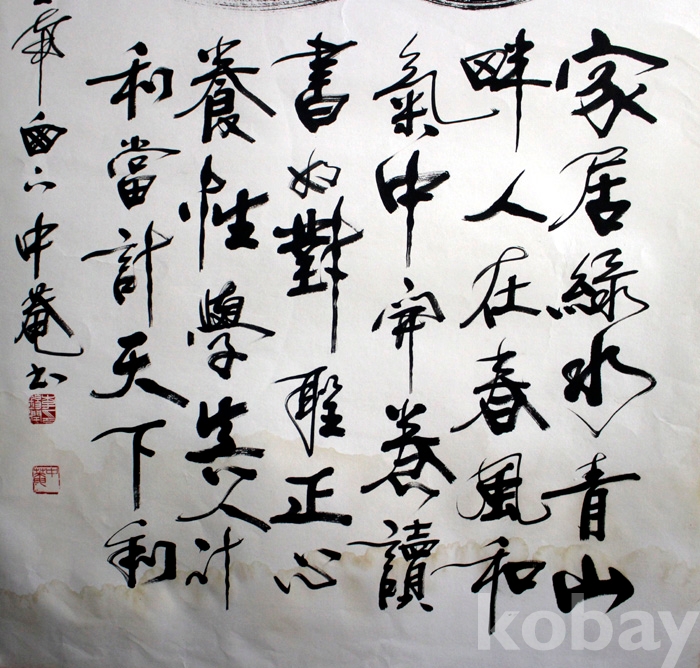 家居綠水青山
畔人在春風和
氣中開卷讀
書如對聖正心
養性學真人計
利當計天下利
辛酉 中菴書
kobay